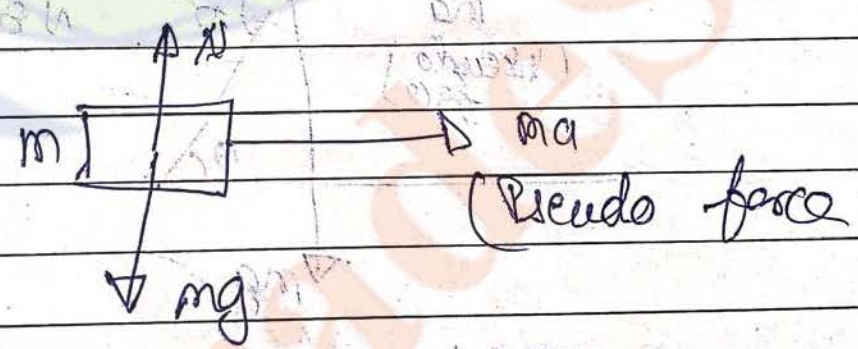 N
m
ma
(Pseudo force
mg